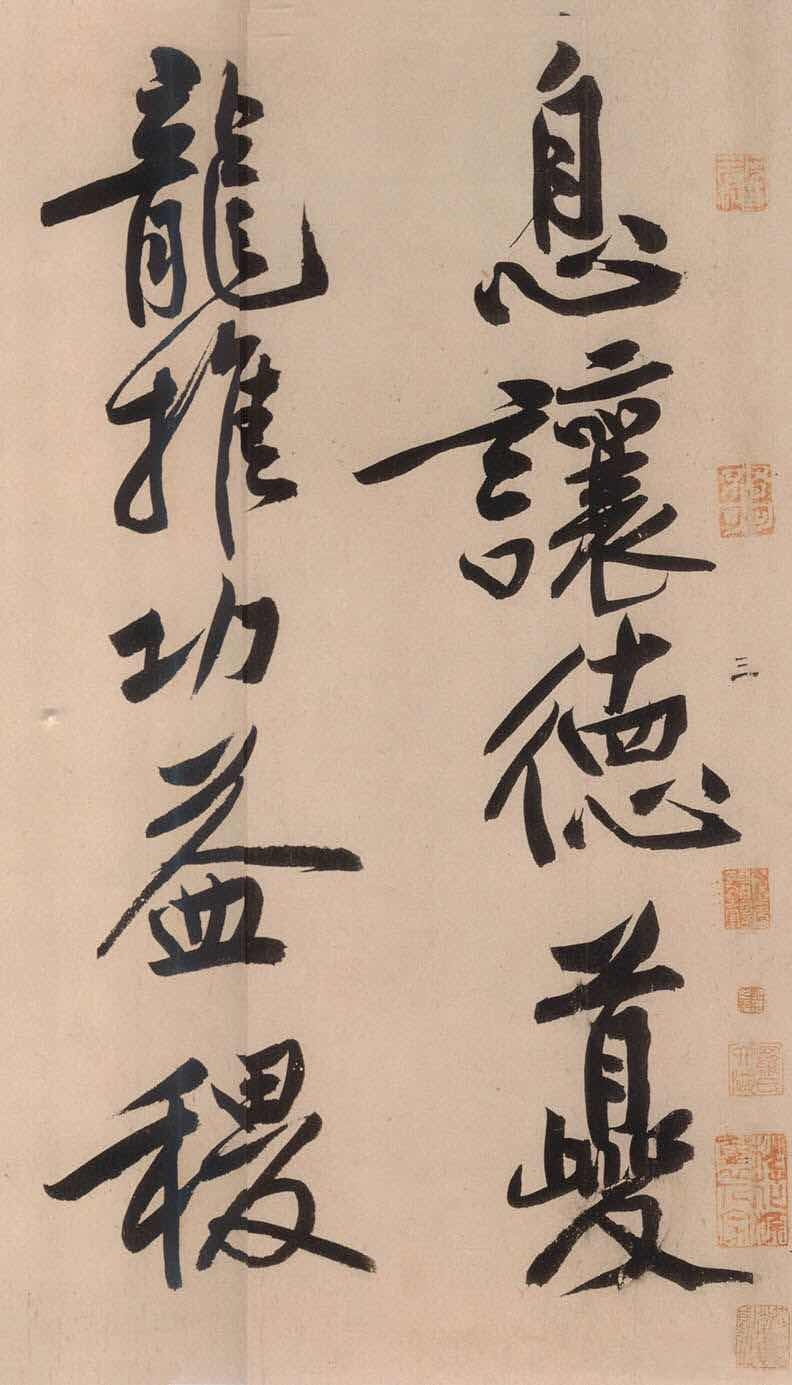 三
息讓德夔
龍推功益稷